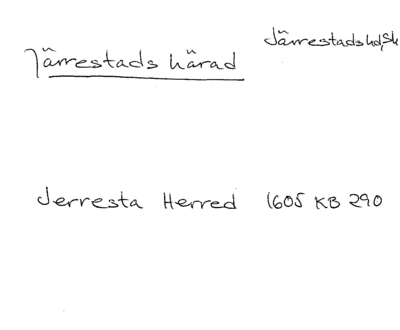 Järrestads hd, Sk
Järrestads härad
Jerresta Herred 1605 KB 290